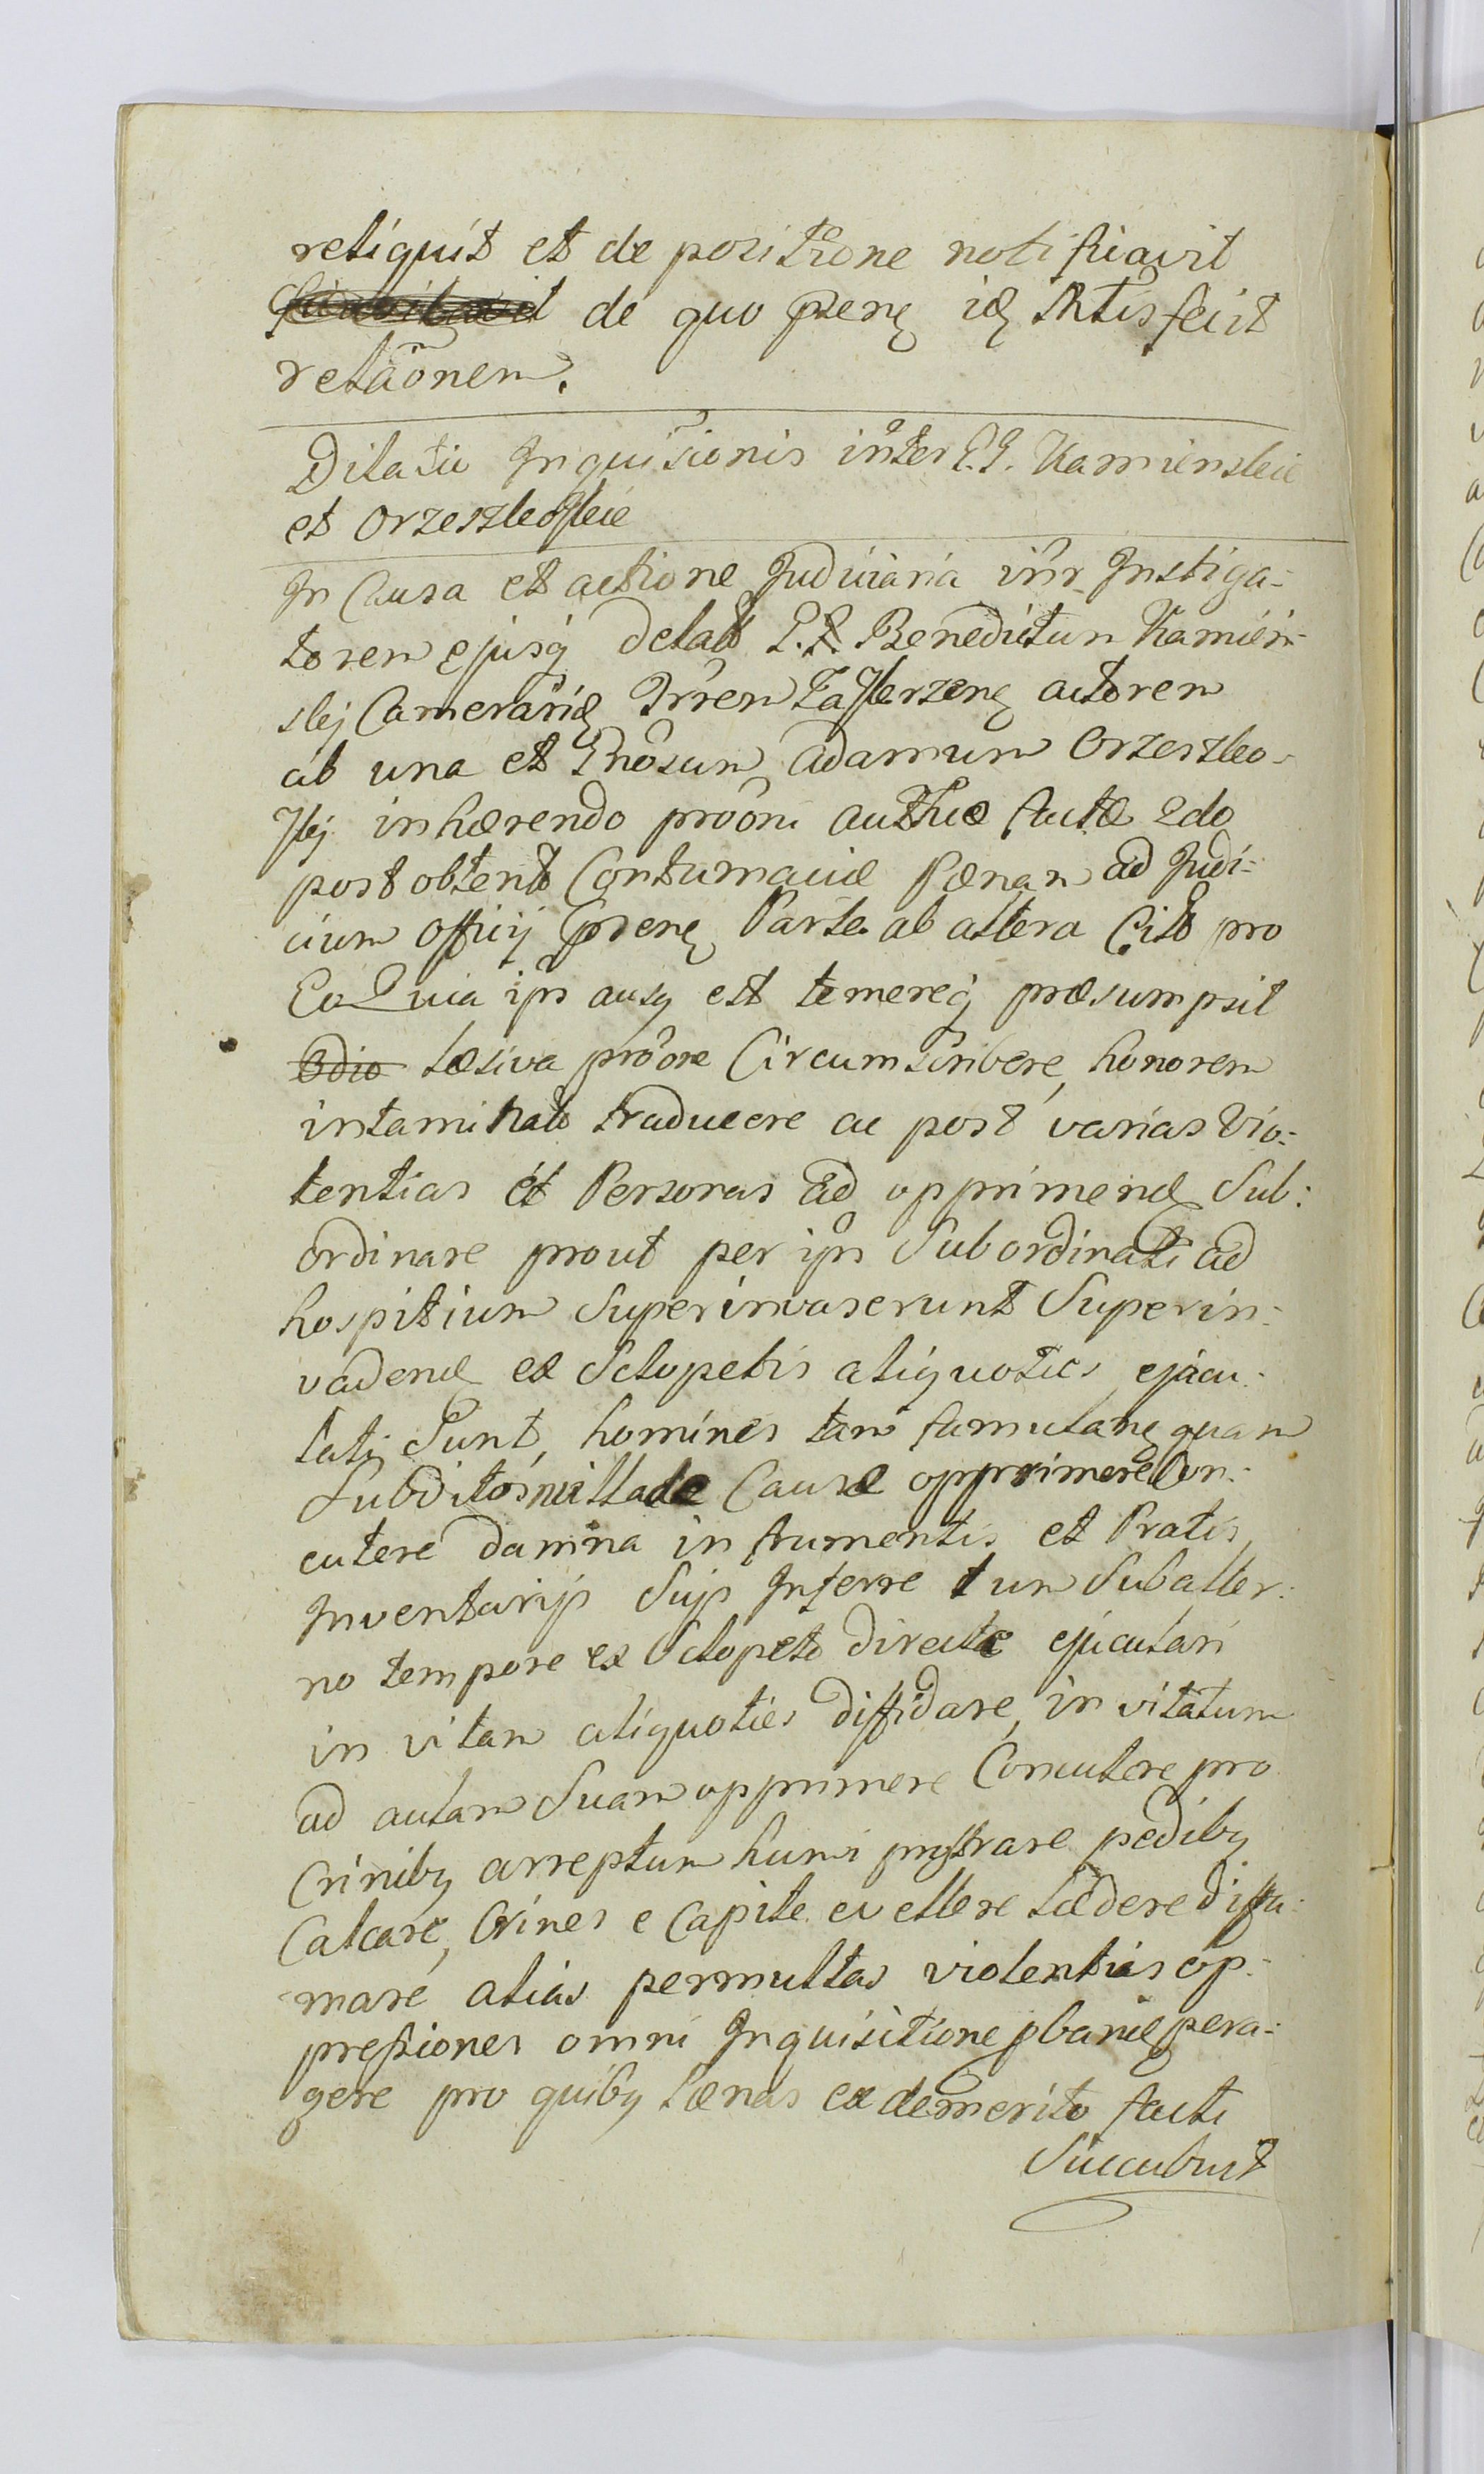 reliquit et de positione notificavit
de quo
relaõnem.
Dilatio Inquisionis inter G.G. Kamienskie
et Orzeszkoskie
In Causa et actione Judiciaria inr Instiga-
torem ejusq delat G.G. Benedictum Kamien-
skj Camerarid actorem
ab una et Gnosum Adamum Orzeszko-
skj inhærendo proõni factæ 2do
post obtent Contumaciæ Pænam ad Judi-
cium Officij Parte ab altera Cit pro
Eo Quia ipse ausq est temereq præsumpsit
Odio læsiva proõne Circumscribere, honorem
intaminat traducere ac post varias Vio-
lentias et Personas ad opprimend Sub:
ordinare prout per ips Subordinati ad
hospitium Superinvaserunt Superin-
vadend ex Sclopetis aliquoties ejacu-
lati Sunt, homines tam famulane quam
Subditos nulla de Causa opprimere Con-
cutere damna in frumentis et Pratis,
Inventarijs Sujs Inferre tum Subalter-
no tempore ex Sclopeto directe ejiculari
in vitam aliquoties diffidare, invitatum
ad aulam Suam opprimere Concutere pro
Crinibq arreptum humi prostrare pedibq
Calcare, Crines e Capite evellere lædere diffa-
mare alias permultas violentias op-
pressiones omni Inquisitione pband pera-
gere pro quibq Pænas ex demerito facti
Succubuit